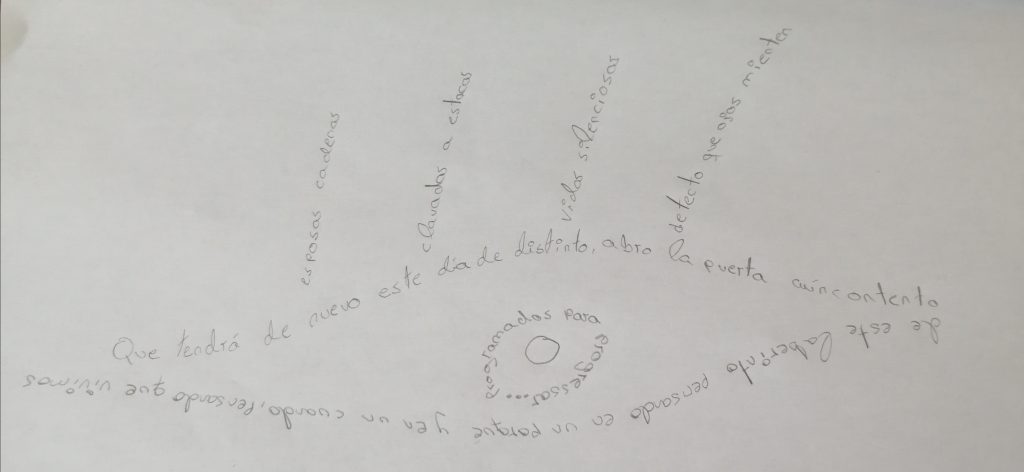 esposas cadenas
clavadas a estacas
vidas silenciosas
detecto que ojos mienten
Que tendrá de nuevo este dia de distinto, abro la puerta aun contento
de este laberinto pensando en un porque y en un cuando, pensando que vivimos
programados para progressar...